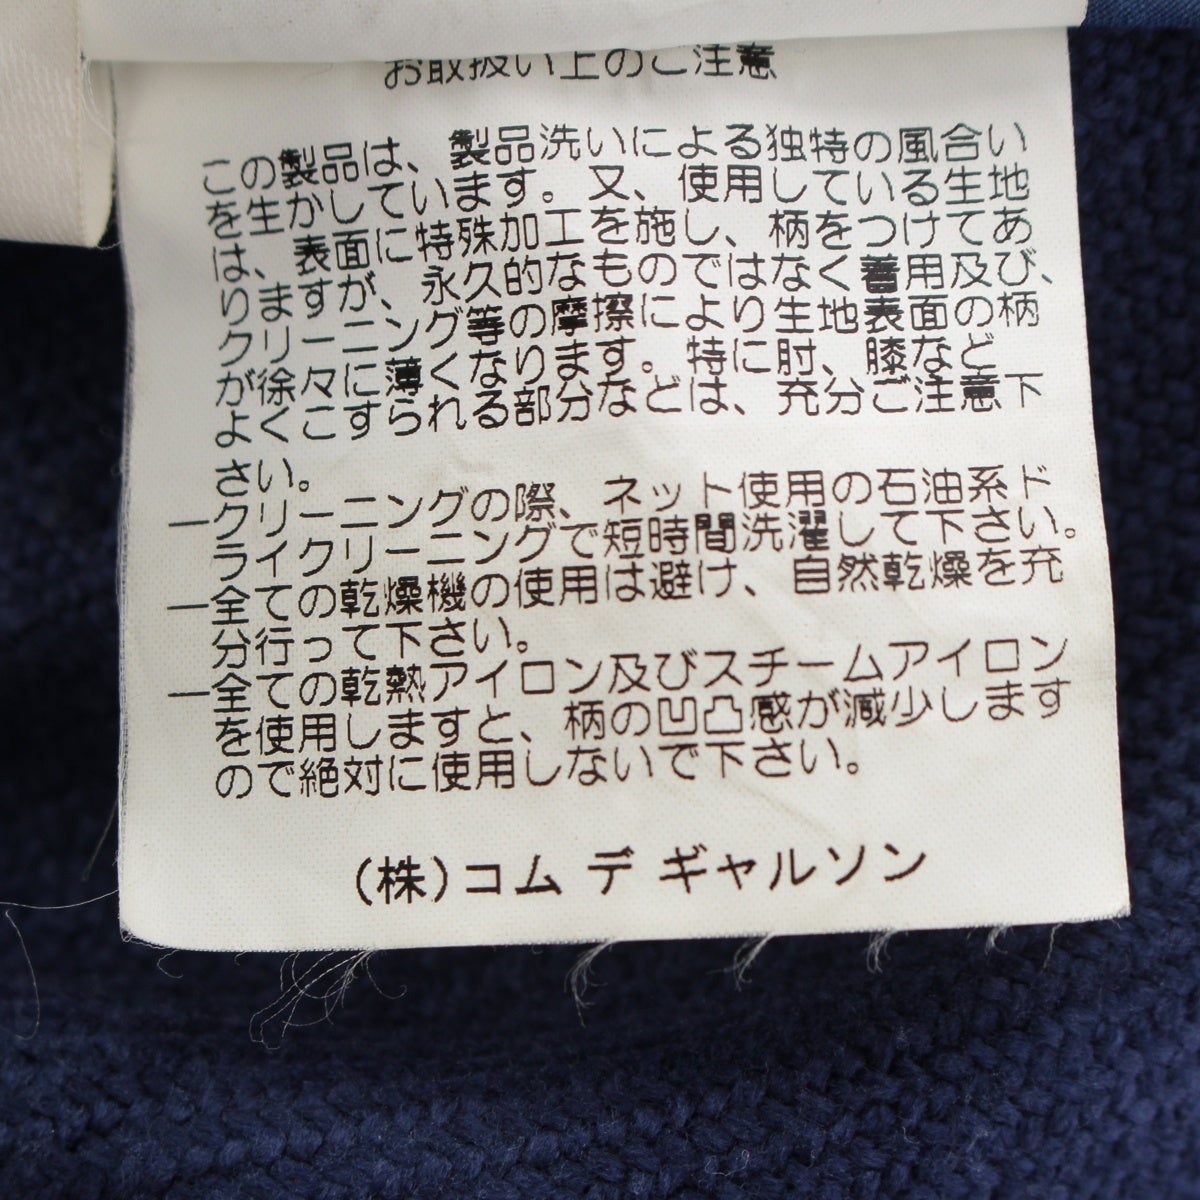 お取扱い上のご注意
この製品は、製品洗いによる独特の風合い
を生かしています。又、使用している生地
は、表面に特殊加工を施し、柄をつけてあ
りますが、永久的なものではなく着用及び、
クリーニング等の摩擦により生地表面の柄
が徐々に薄くなります。特に肘、膝など
よくこすられる部分などは、充分ご注意下
さい。
—クリーニングの際、ネット使用の石油系ド
ライクリーニングで短時間洗濯して下さい。
—全ての乾燥機の使用は避け、自然乾燥を充
分行って下さい。
—全ての乾熱アイロン及びスチームアイロン
を使用しますと、柄の凹凸感が減少します
ので絶対に使用しないで下さい。
(株)コム デ ギャルソン